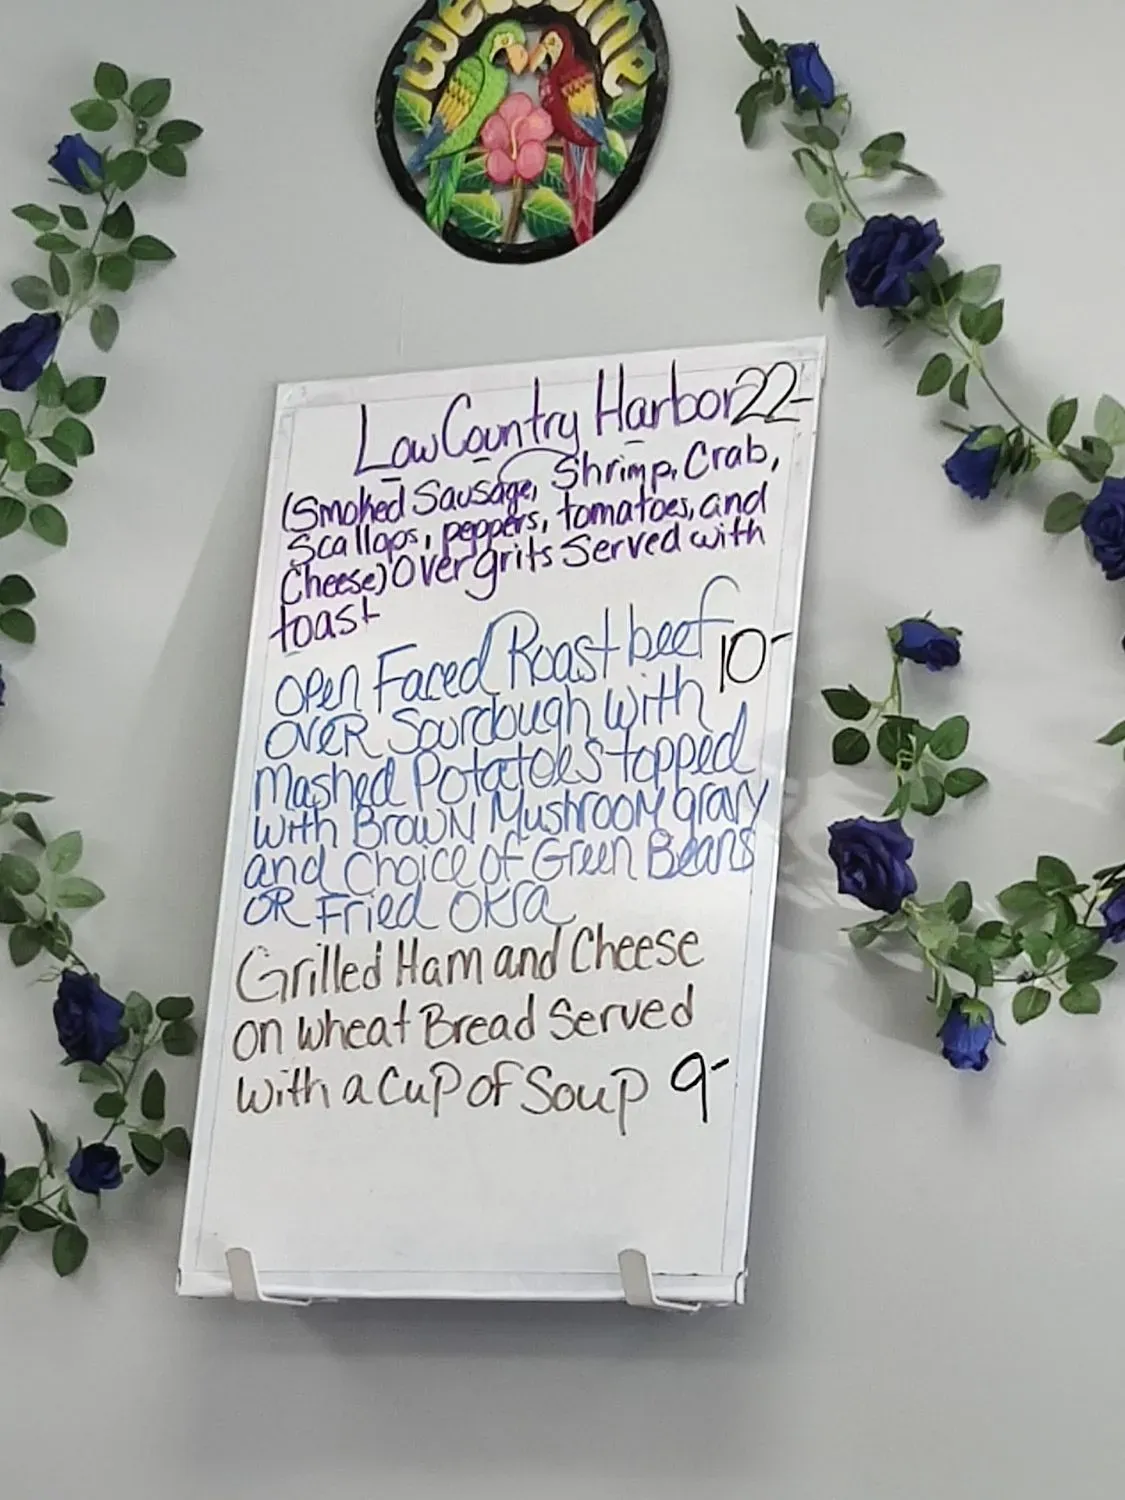 Welcome
Low Country Harbor 22-
(Smoked Sausage, Shrimp, Crab,
Scallops, peppers, tomatoes, and
Cheese) Over grits Served with
toast
Open Faced Roast beef 10-
OVER Sourdough with
Mashed Potatoes topped
with BROWN Mushroom gravy
and Choice of Green Beans
OR Fried OKra
Grilled Ham and Cheese
on wheat Bread Served
with a Cup of Soup 9-